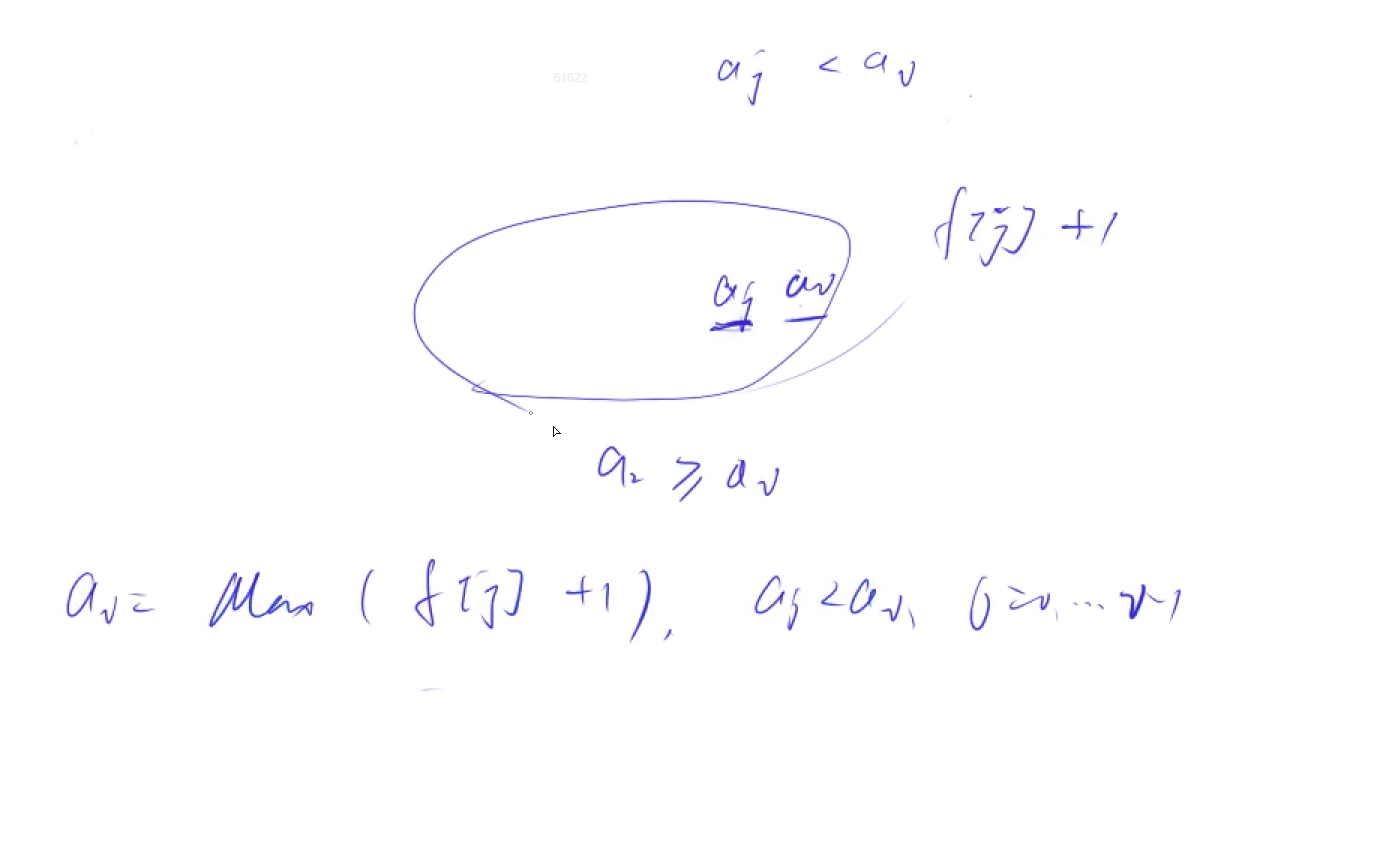 61622
a_j < a_i
f[j] + 1
a_j a_i
a_2 ≥ a_i
a_i = Max ( f[j] + 1 ), a_j < a_i, j = 0, ... i-1